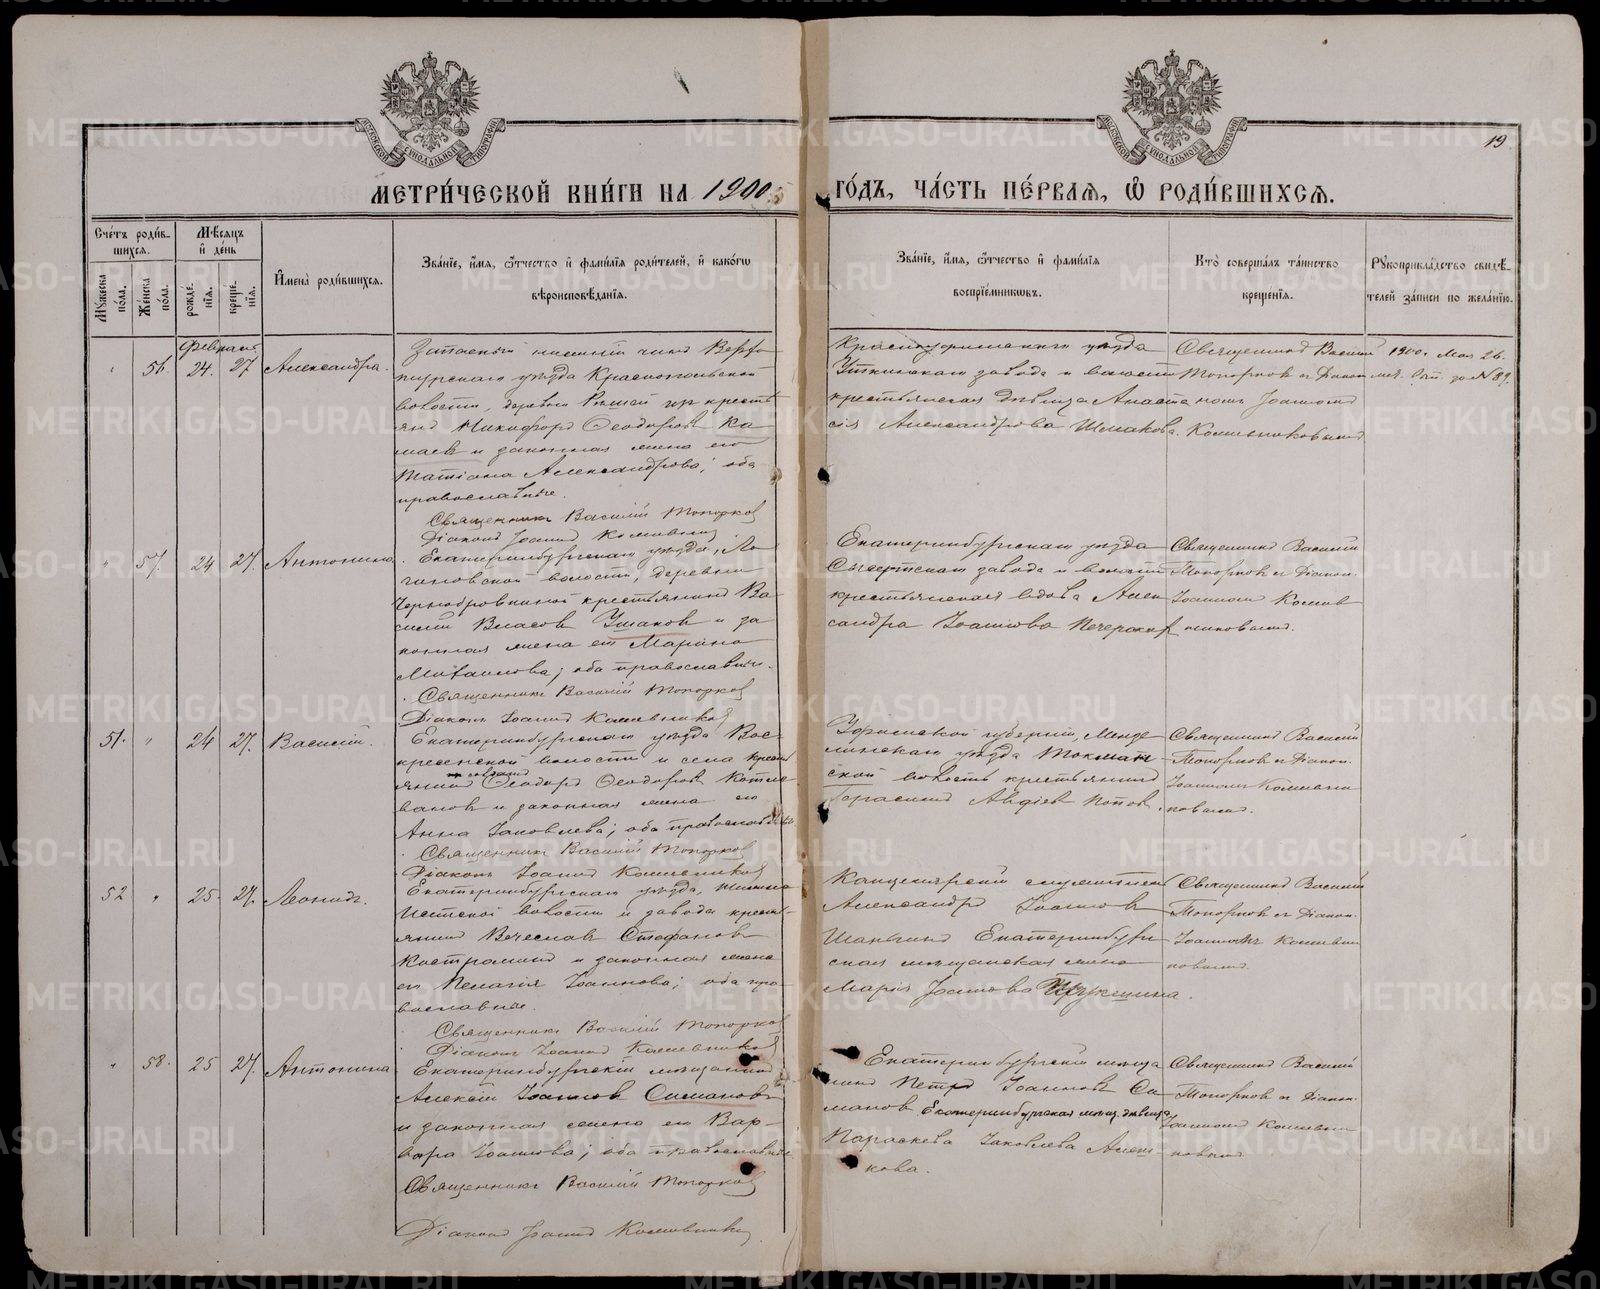 МЕТРИ́ЧЕСКОЙ КНИ́ГИ НА 1900
ГО́ДЪ, ЧА́СТЬ ПЕ́РВАЯ, Ѿ РОДИ́ВШИХСЯ.
19
Сче́тъ роди́в-
шихся.
Мѣ́сяцъ
и҆ де́нь
Му́жеска по́ла.
Же́нска по́ла.
рожде́-нїя.
креще́-нїя.
И҆мена̀ роди́вшихся.
Зва́нїе, и҆́мя, ѻ҆́тчество и҆ фами́лїя роди́телей, и҆ како́гѡ
вѣроисповѣ́данїя.
Зва́нїе, и҆́мя, ѻ҆́тчество и҆ фами́лїя
воспрїе́мниковъ.
Кто̀ соверша́лъ та́инство
креще́нїя.
Рукоприкла́дство свидѣ́-
телей за́писи по жела́нїю.
Февраль
56. 24. 27 Александра.
Запасный нисшій чинъ Верхо
турскаго уѣзда Красногольской
волости, деревни изъ кресть
янъ Никифоръ Ѳеодоровъ Ка
и законная жена его
Татіана Александрова; оба
православные.
Священникъ Василій Топорковъ
Діаконъ Іоаннъ Кожевниковъ
Красноуфимскаго уѣзда
Уткинскаго завода и волости
крестьянская дѣвица Анаста
сія Александрова Шмакова.
Священникъ Василій
Топорковъ съ Діако
номъ Іоанномъ
Кожевниковымъ
1900. Мая 26.
за № 89.
57. 24 27. Антонина.
Екатеринбургскаго уѣзда, Ло
гиновской волости, деревни
Чернобровкиной крестьянинъ Ва
силій Власовъ Ушаковъ и за
конная жена его Марина
Михаилова; оба православные.
Священникъ Василій Топорковъ
Діаконъ Іоаннъ Кожевниковъ
Екатеринбургскаго уѣзда
Сысертскаго завода и волости
крестьянская вдова Алек
сандра Іоаннова
Священникъ Василій
Топорковъ съ Діакон.
Іоанномъ Кожев
никовымъ.
51. 24 27. Василій.
Екатеринбургскаго уѣзда Вос-
кресенской волости и села кресть
янинъ Ѳеодоръ Ѳеодоровъ Котло
вановъ и законная жена его
Анна Іаковлева; оба православные.
Священникъ Василій Топорковъ
Діаконъ Іоаннъ Кожевниковъ
Уфимской губерніи, Менде
линскаго уѣзда Токмак
ской волости крестьянинъ
Герасимъ Авдіевъ Поповъ.
Священникъ Василій
Топорковъ съ Діакон.
Іоанномъ Кожевни
ковымъ.
52 25. 27. Леонидъ.
Екатеринбургскаго уѣзда, Нижне
Исетской волости и завода кресть-
янинъ Вечеславъ Стефановъ
Костроминъ и законная жена
его Пелагія Іоаннова; оба пра
вославные.
Священникъ Василій Топорковъ
Діаконъ Іоаннъ Кожевниковъ
Канцелярскій служитель
Александръ Іоанновъ
Шаньгинъ Екатеринбург
ская мѣщанская жена
Марія Іоаннова
Священникъ Василій
Топорковъ съ Діакон.
Іоанномъ Кожевни
ковымъ.
58. 25 27. Антонина
Екатеринбургскій мѣщанинъ
Алексій Іоанновъ Симановъ
и законная жена его Вар-
вара Іоаннова; оба православные
Священникъ Василій Топорковъ
Діаконъ Іоаннъ Кожевниковъ
Екатеринбургскій мѣща
нинъ Петръ Іоанновъ Си
мановъ Екатеринбургская мѣщ. дѣвица
Параскева Іаковлева Алеш-
кова.
Священникъ Василій
Топорковъ съ Діакон.
Іоанномъ Кожевни
ковымъ
METRIKI.GASO-URAL.RU